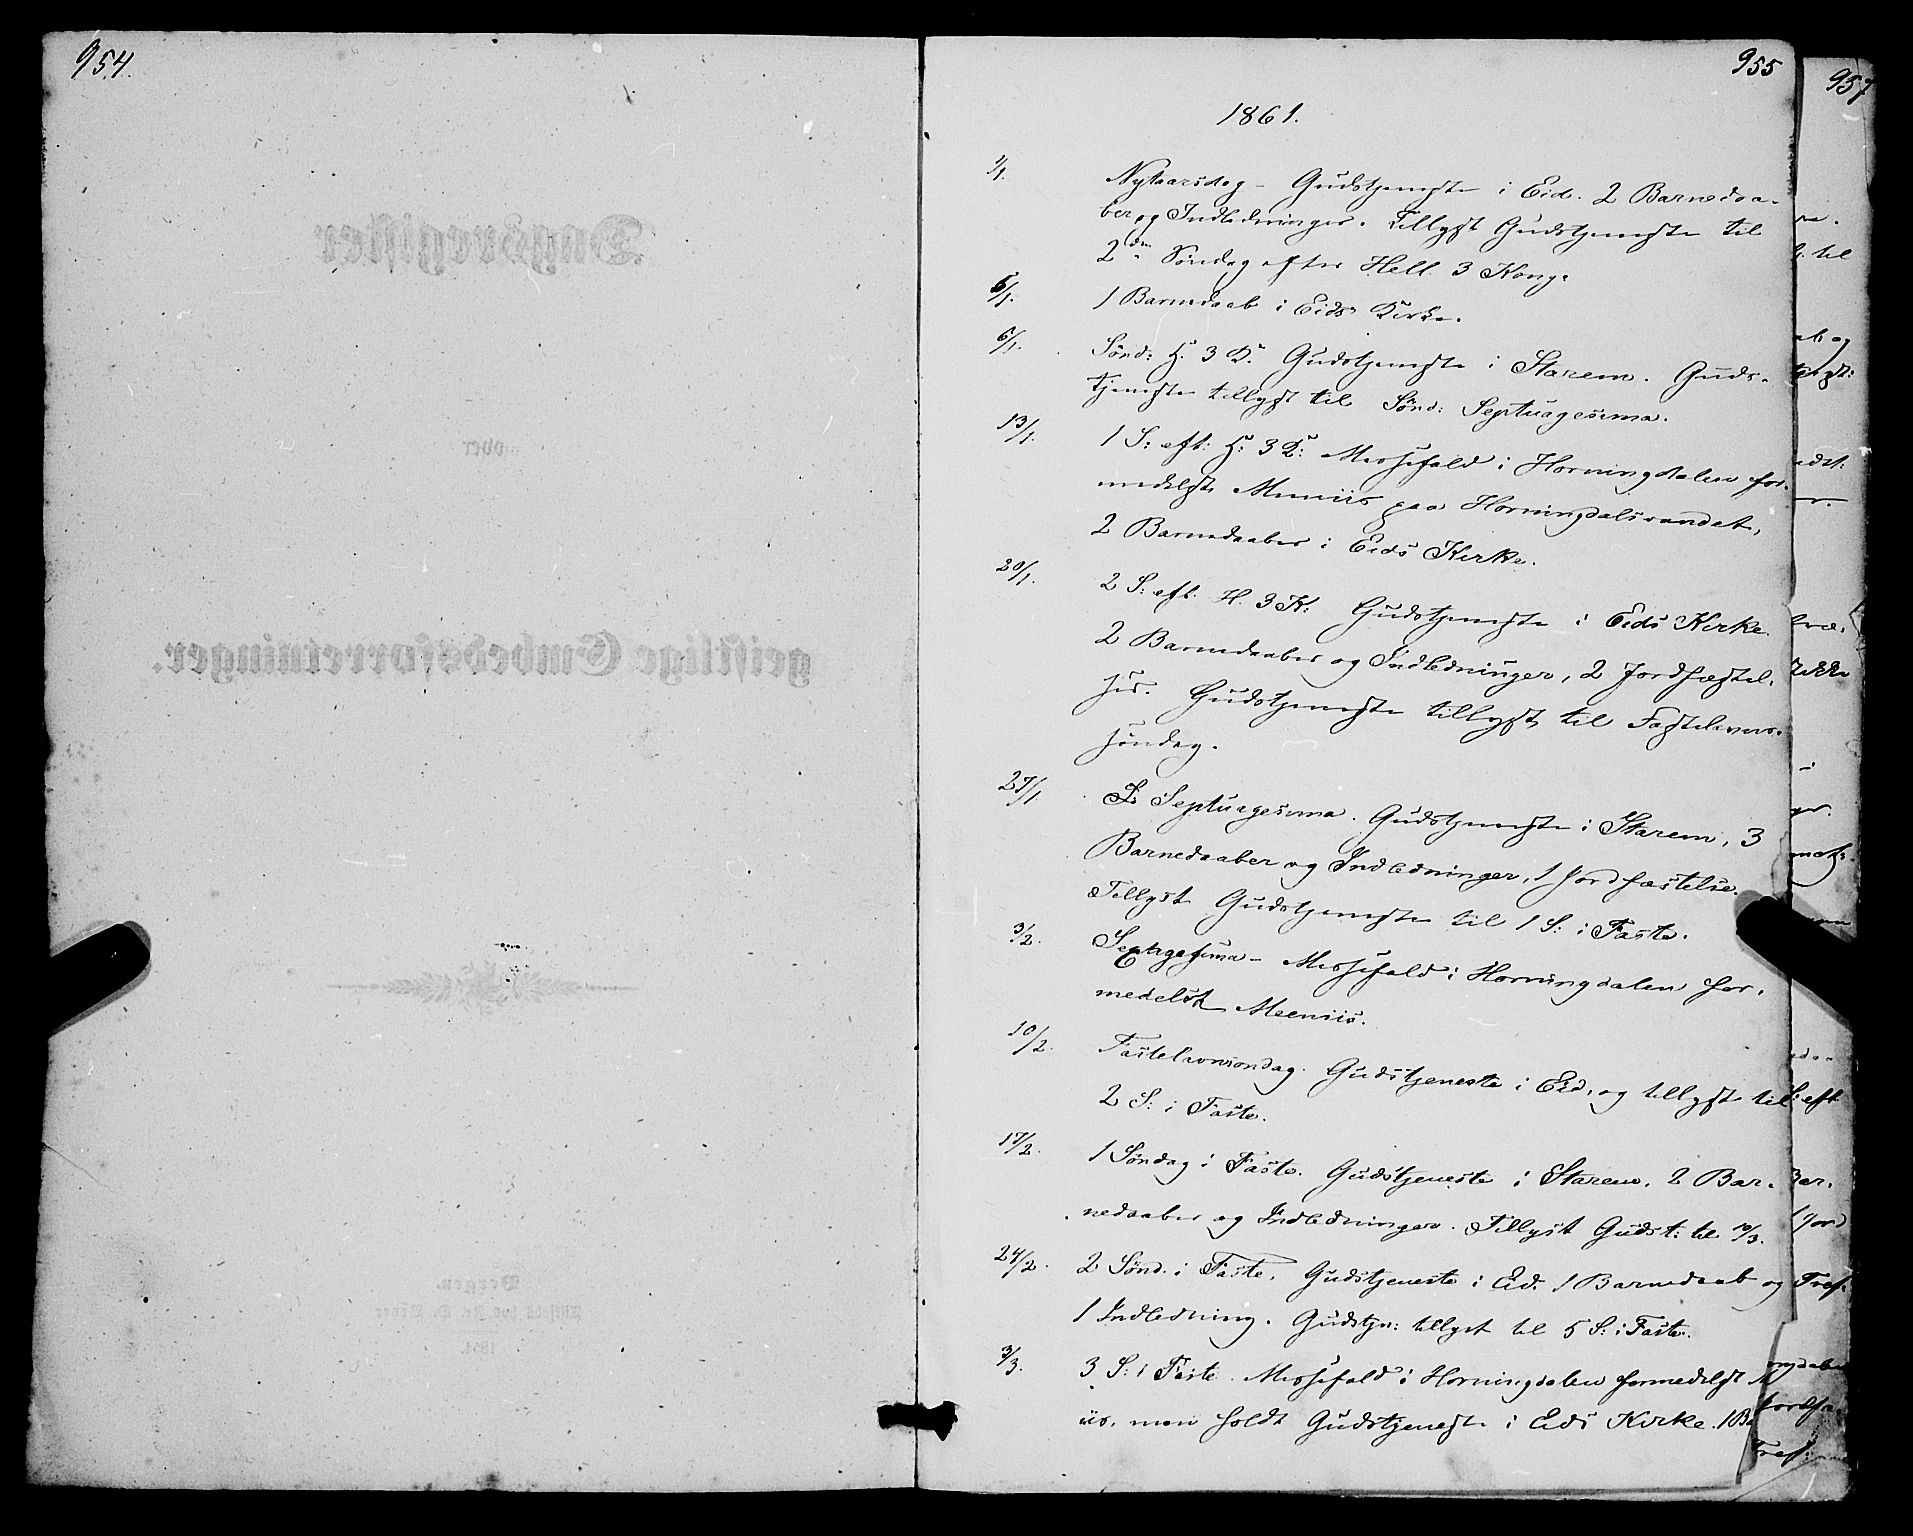 954.
955
957
1861.
1/1. Nytaarsdag - Gudstjeneste i Eid. 2 Barnedaa-
ber og Indledninger. Tillyst Gudstjeneste til
2den Søndag efter Hell. 3 Kong.
6/1. 1 Barnedaab i Eids Kirke.
6/1. Sønd: H. 3 K. Gudstjeneste i Starem. Guds-
tjeneste tillyst til Sønd: Septuagesima.
13/1. 1 S: eft: H: 3 K: Messefald i Horningdalen for-
medelst Meeniis paa Horningdalsvandet,
2 Barnedaaber i Eids Kirke.
20/1. 2 S: eft: H. 3 K: Gudstjeneste i Eids Kirke.
2 Barnedaaber og Indledninger, 2 Jordfæstel-
ser. Gudstjeneste tillyst til Fastelavns-
søndag.
27/1. S. Septuagesima. Gudstjeneste i Starem, 3
Barnedaaber og Indledninger, 1 Jordfæstelse.
Tillyst Gudstjeneste til 1 S: i Faste.
3/2. Messefald i Horningdalen for-
medelst Meeniis.
10/2. Fastelavnsøndag. Gudstjeneste i Eid, og tillyst til
2 S: i Faste.
17/2. 1 Søndag i Faste. Gudstjeneste i Starem. 2 Bar-
nedaaber og Indledninger. Tillyst Gudst: til 10/3.
24/2. 2 Sønd. i Faste. Gudstjeneste i Eid. 1 Barnedaab og
1 Indledning. Gudstjn: tillyst til 5 S: i Faste.
3/3. 3 S: i Faste. Messefald i Horningdalen formedelst M
iis, men holdt Gudstjeneste i Eids Kirke. 1 Ba
Dagsregister
over
geistlige Embedsforretninger.
Bergen.